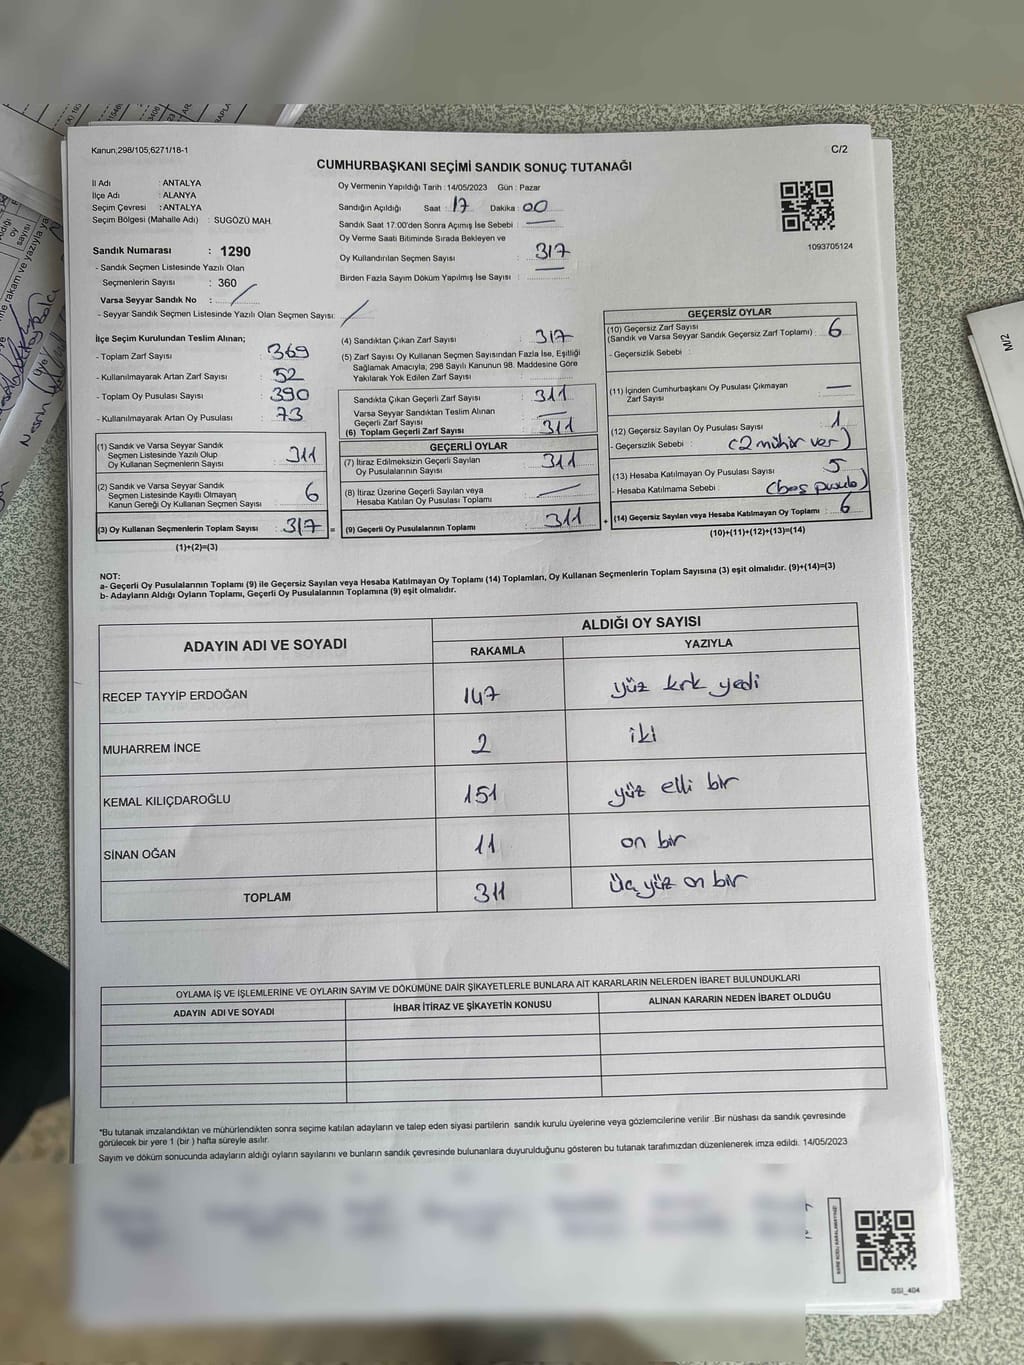 Kanun,298/105,6271/18-1
C/2
CUMHURBAŞKANI SEÇİMİ SANDIK SONUÇ TUTANAĞI
İl Adı : ANTALYA
İlçe Adı : ALANYA
Seçim Çevresi : ANTALYA
Seçim Bölgesi (Mahalle Adı) : SUGÖZÜ MAH.
Sandık Numarası : 1290
- Sandık Seçmen Listesinde Yazılı Olan
Seçmenlerin Sayısı : 360
Varsa Seyyar Sandık No :
- Seyyar Sandık Seçmen Listesinde Yazılı Olan Seçmen Sayısı:
Oy Vermenin Yapıldığı Tarih : 14/05/2023 Gün : Pazar
Sandığın Açıldığı Saat : 17 Dakika : 00
Sandık Saat 17:00'den Sonra Açımış İse Sebebi :
Oy Verme Saati Bitiminde Sırada Bekleyen ve
Oy Kullandırılan Seçmen Sayısı : 317
Birden Fazla Sayım Döküm Yapılmış İse Sayısı :
1093705124
İlçe Seçim Kurulundan Teslim Alınan;
- Toplam Zarf Sayısı : 369
- Kullanılmayarak Artan Zarf Sayısı : 52
- Toplam Oy Pusulası Sayısı : 390
- Kullanılmayarak Artan Oy Pusulası : 73
(1) Sandık ve Varsa Seyyar Sandık
Seçmen Listesinde Yazılı Olup
Oy Kullanan Seçmenlerin Sayısı : 311
(2) Sandık ve Varsa Seyyar Sandık
Seçmen Listesinde Kayıtlı Olmayan
Kanun Gereği Oy Kullanan Seçmen Sayısı : 6
(3) Oy Kullanan Seçmenlerin Toplam Sayısı : 317 =
(1)+(2)=(3)
(4) Sandıktan Çıkan Zarf Sayısı : 317
(5) Zarf Sayısı Oy Kullanan Seçmen Sayısından Fazla İse, Eşitliği
Sağlamak Amacıyla, 298 Sayılı Kanunun 98. Maddesine Göre
Yakılarak Yok Edilen Zarf Sayısı :
Sandıkta Çıkan Geçerli Zarf Sayısı : 311
Varsa Seyyar Sandıktan Teslim Alınan
Geçerli Zarf Sayısı :
(6) Toplam Geçerli Zarf Sayısı : 311
GEÇERLİ OYLAR
(7) İtiraz Edilmeksizin Geçerli Sayılan
Oy Pusulalarının Sayısı : 311
(8) İtiraz Üzerine Geçerli Sayılan veya
Hesaba Katılan Oy Pusulası Toplamı :
(9) Geçerli Oy Pusulalarının Toplamı : 311 +
GEÇERSİZ OYLAR
(10) Geçersiz Zarf Sayısı
(Sandık ve Varsa Seyyar Sandık Geçersiz Zarf Toplamı) : 6
- Geçersizlik Sebebi :
(11) İçinden Cumhurbaşkanı Oy Pusulası Çıkmayan
Zarf Sayısı :
(12) Geçersiz Sayılan Oy Pusulası Sayısı : 1
- Geçersizlik Sebebi : (2 mühür ver)
(13) Hesaba Katılmayan Oy Pusulası Sayısı : 5
- Hesaba Katılmama Sebebi : (boş pusula)
(14) Geçersiz Sayılan veya Hesaba Katılmayan Oy Toplamı : 6
(10)+(11)+(12)+(13)=(14)
NOT:
a- Geçerli Oy Pusulalarının Toplamı (9) ile Geçersiz Sayılan veya Hesaba Katılmayan Oy Toplamı (14) Toplamları, Oy Kullanan Seçmenlerin Toplam Sayısına (3) eşit olmalıdır. (9)+(14)=(3)
b- Adayların Aldığı Oyların Toplamı, Geçerli Oy Pusulalarının Toplamına (9) eşit olmalıdır.
ADAYIN ADI VE SOYADI
ALDIĞI OY SAYISI
RAKAMLA YAZIYLA
RECEP TAYYİP ERDOĞAN 147 yüz kırk yedi
MUHARREM İNCE 2 iki
KEMAL KILIÇDAROĞLU 151 yüz elli bir
SİNAN OĞAN 11 on bir
TOPLAM 311 Üç yüz on bir
OYLAMA İŞ VE İŞLEMLERİNE VE OYLARIN SAYIM VE DÖKÜMÜNE DAİR ŞİKAYETLERLE BUNLARA AİT KARARLARIN NELERDEN İBARET BULUNDUKLARI
ADAYIN ADI VE SOYADI İHBAR İTİRAZ VE ŞİKAYETİN KONUSU ALINAN KARARIN NEDEN İBARET OLDUĞU
*Bu tutanak imzalandıktan ve mühürlendikten sonra seçime katılan adayların ve talep eden siyasi partilerin sandık kurulu üyelerine veya gözlemcilerine verilir .Bir nüshası da sandık çevresinde
görülecek bir yere 1 (bir ) hafta süreyle asılır.
Sayım ve döküm sonucunda adayların aldığı oyların sayılarını ve bunların sandık çevresinde bulunanlara duyurulduğunu gösteren bu tutanak tarafımızdan düzenlenerek imza edildi. 14/05/2023
SSI_404
M/2